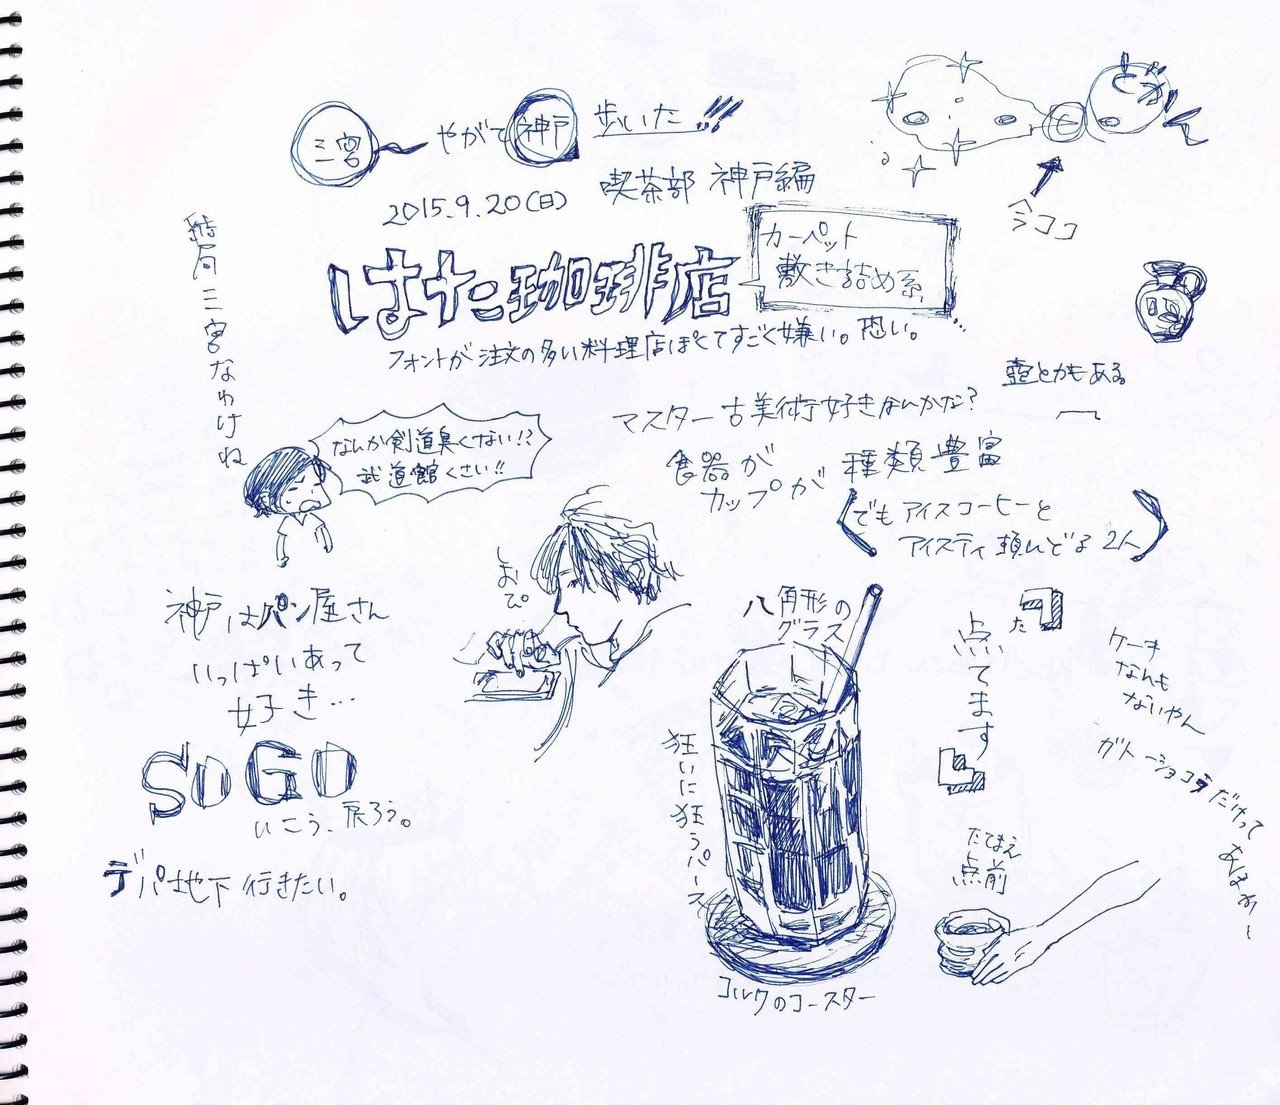 三宮 やがて 神戸 歩いた!!!
2015.9.20(日) 喫茶部 神戸編
今ココ
結局三宮なわけね
はた珈琲店
カーペット
敷き詰め系
フォントが注文の多い料理店ぽくてすごく嫌い。恐い。
壺とかもある
マスター古美術好きなんかな?
食器が
カップが 種類豊富
でもアイスコーヒーと
アイスティ頼んどる2人
なんか剣道臭くない!?
武道館くさい!!
神戸はパン屋さん
いっぱいあって
好き…
SOGO
いこう、戻ろう。
デパ地下行きたい。
八角形の
グラス
狂いに狂うパース
コルクのコースター
た
点てます
たてまえ
点前
ケーキ
なんも
ないやん
ガトーショコラだけって